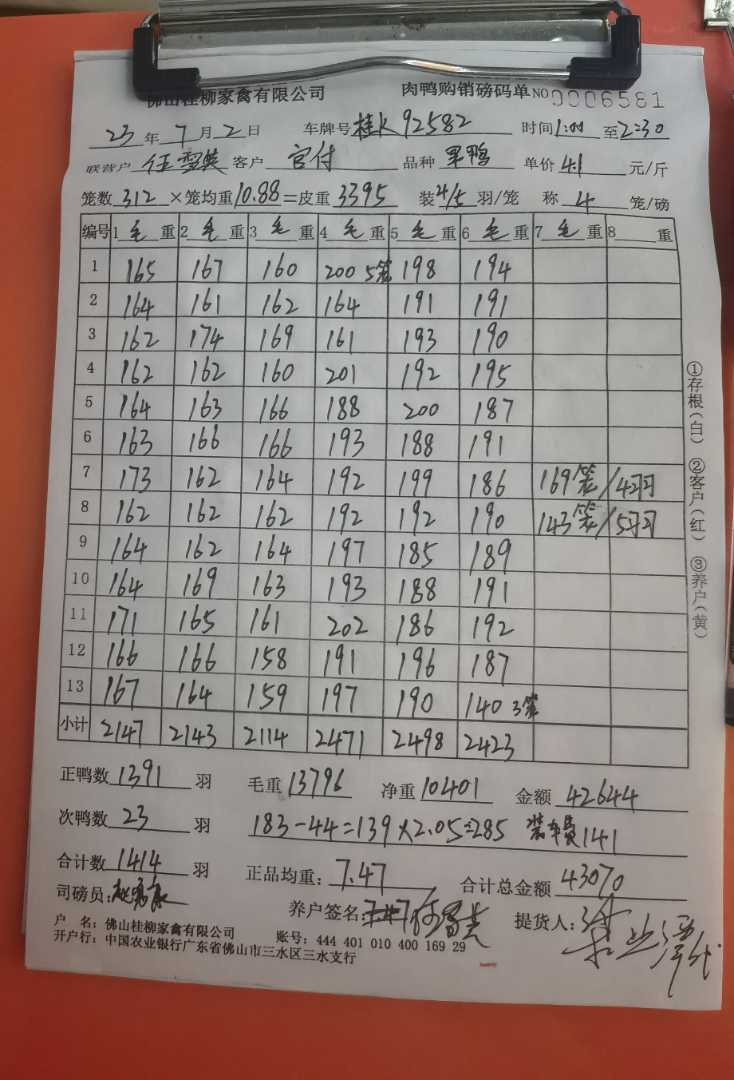 佛山桂柳家禽有限公司 肉鸭购销磅码单 NO 0006581
23 年 7 月 2 日 车牌号 桂K 92582 时间 1:00 至 2:30
联营户 客户 官付 品种 果鸭 单价 4.1 元/斤
笼数 312 ×笼均重 10.88 =皮重 3395 装 4/5 羽/笼 称 4 笼/磅
编号 1 毛 重 2 毛 重 3 毛 重 4 毛 重 5 毛 重 6 毛 重 7 毛 重 8 重
1 165 167 160 200 5笼 198 194
2 164 161 162 164 191 191
3 162 174 169 161 193 190
4 162 162 160 201 192 195
5 164 163 166 188 200 187
6 163 166 166 193 188 191
7 173 162 164 192 199 186 169笼/4羽
8 162 162 162 192 192 190 143笼/5羽
9 164 162 164 197 185 189
10 164 169 163 193 188 191
11 171 165 161 202 186 192
12 166 166 158 191 196 187
13 167 164 159 197 190 140 3笼
小计 2147 2143 2114 2471 2498 2423
①存根(白) ②客户(红) ③养户(黄)
正鸭数 1391 羽 毛重 13796 净重 10401 金额 42644
次鸭数 23 羽 183-44=139×2.05=285 装车费141
合计数 1414 羽 正品均重: 7.47 合计总金额 43070
司磅员: 养户签名: 提货人:
户 名: 佛山桂柳家禽有限公司 账号: 444 401 010 400 169 29
开户行: 中国农业银行广东省佛山市三水区三水支行